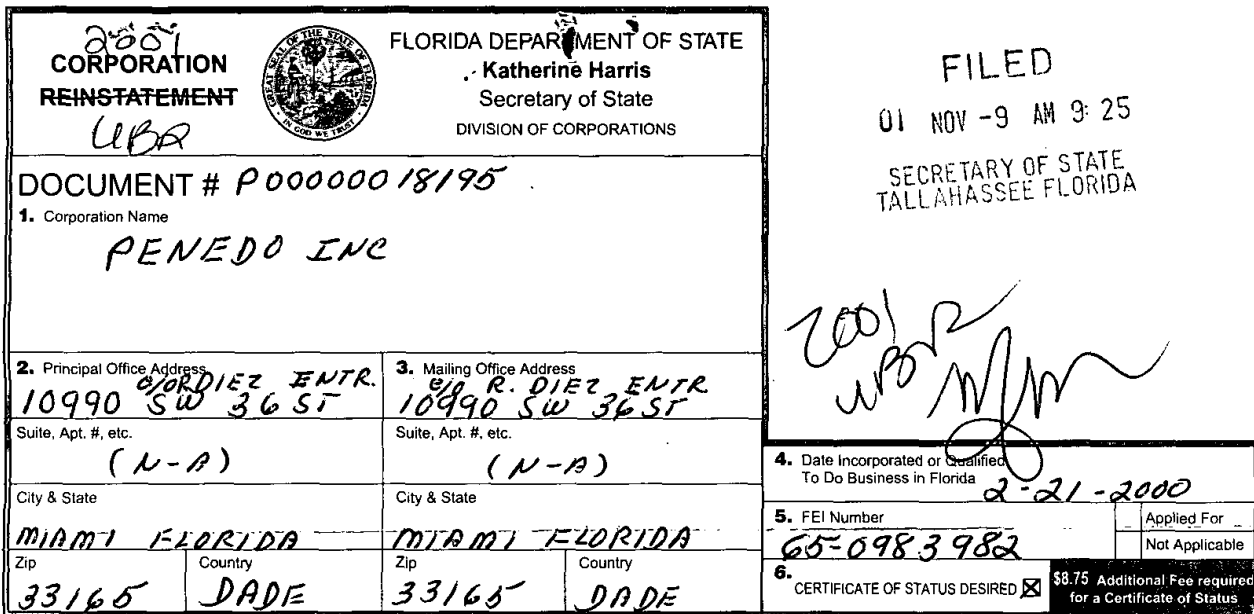 2001
CORPORATION
REINSTATEMENT
UBR
GREAT SEAL OF THE STATE OF FLORIDA
IN GOD WE TRUST
FLORIDA DEPARTMENT OF STATE
Katherine Harris
Secretary of State
DIVISION OF CORPORATIONS
FILED
01 NOV -9 AM 9:25
SECRETARY OF STATE
TALLAHASSEE FLORIDA
DOCUMENT # P00000018195
1. Corporation Name
PENEDO INC
2001
UBR
2. Principal Office Address
c/o R DIEZ ENTR.
10990 SW 36 ST
3. Mailing Office Address
c/o R. DIEZ ENTR
10990 SW 36 ST
Suite, Apt. #, etc.
(N-A)
Suite, Apt. #, etc.
(N-A)
City & State
MIAMI FLORIDA
City & State
MIAMI FLORIDA
Zip
33165
Country
DADE
Zip
33165
Country
DADE
4. Date Incorporated or Qualified
To Do Business in Florida
2-21-2000
5. FEI Number
65-0983982
Applied For
Not Applicable
6.
CERTIFICATE OF STATUS DESIRED ☒
$8.75 Additional Fee required
for a Certificate of Status